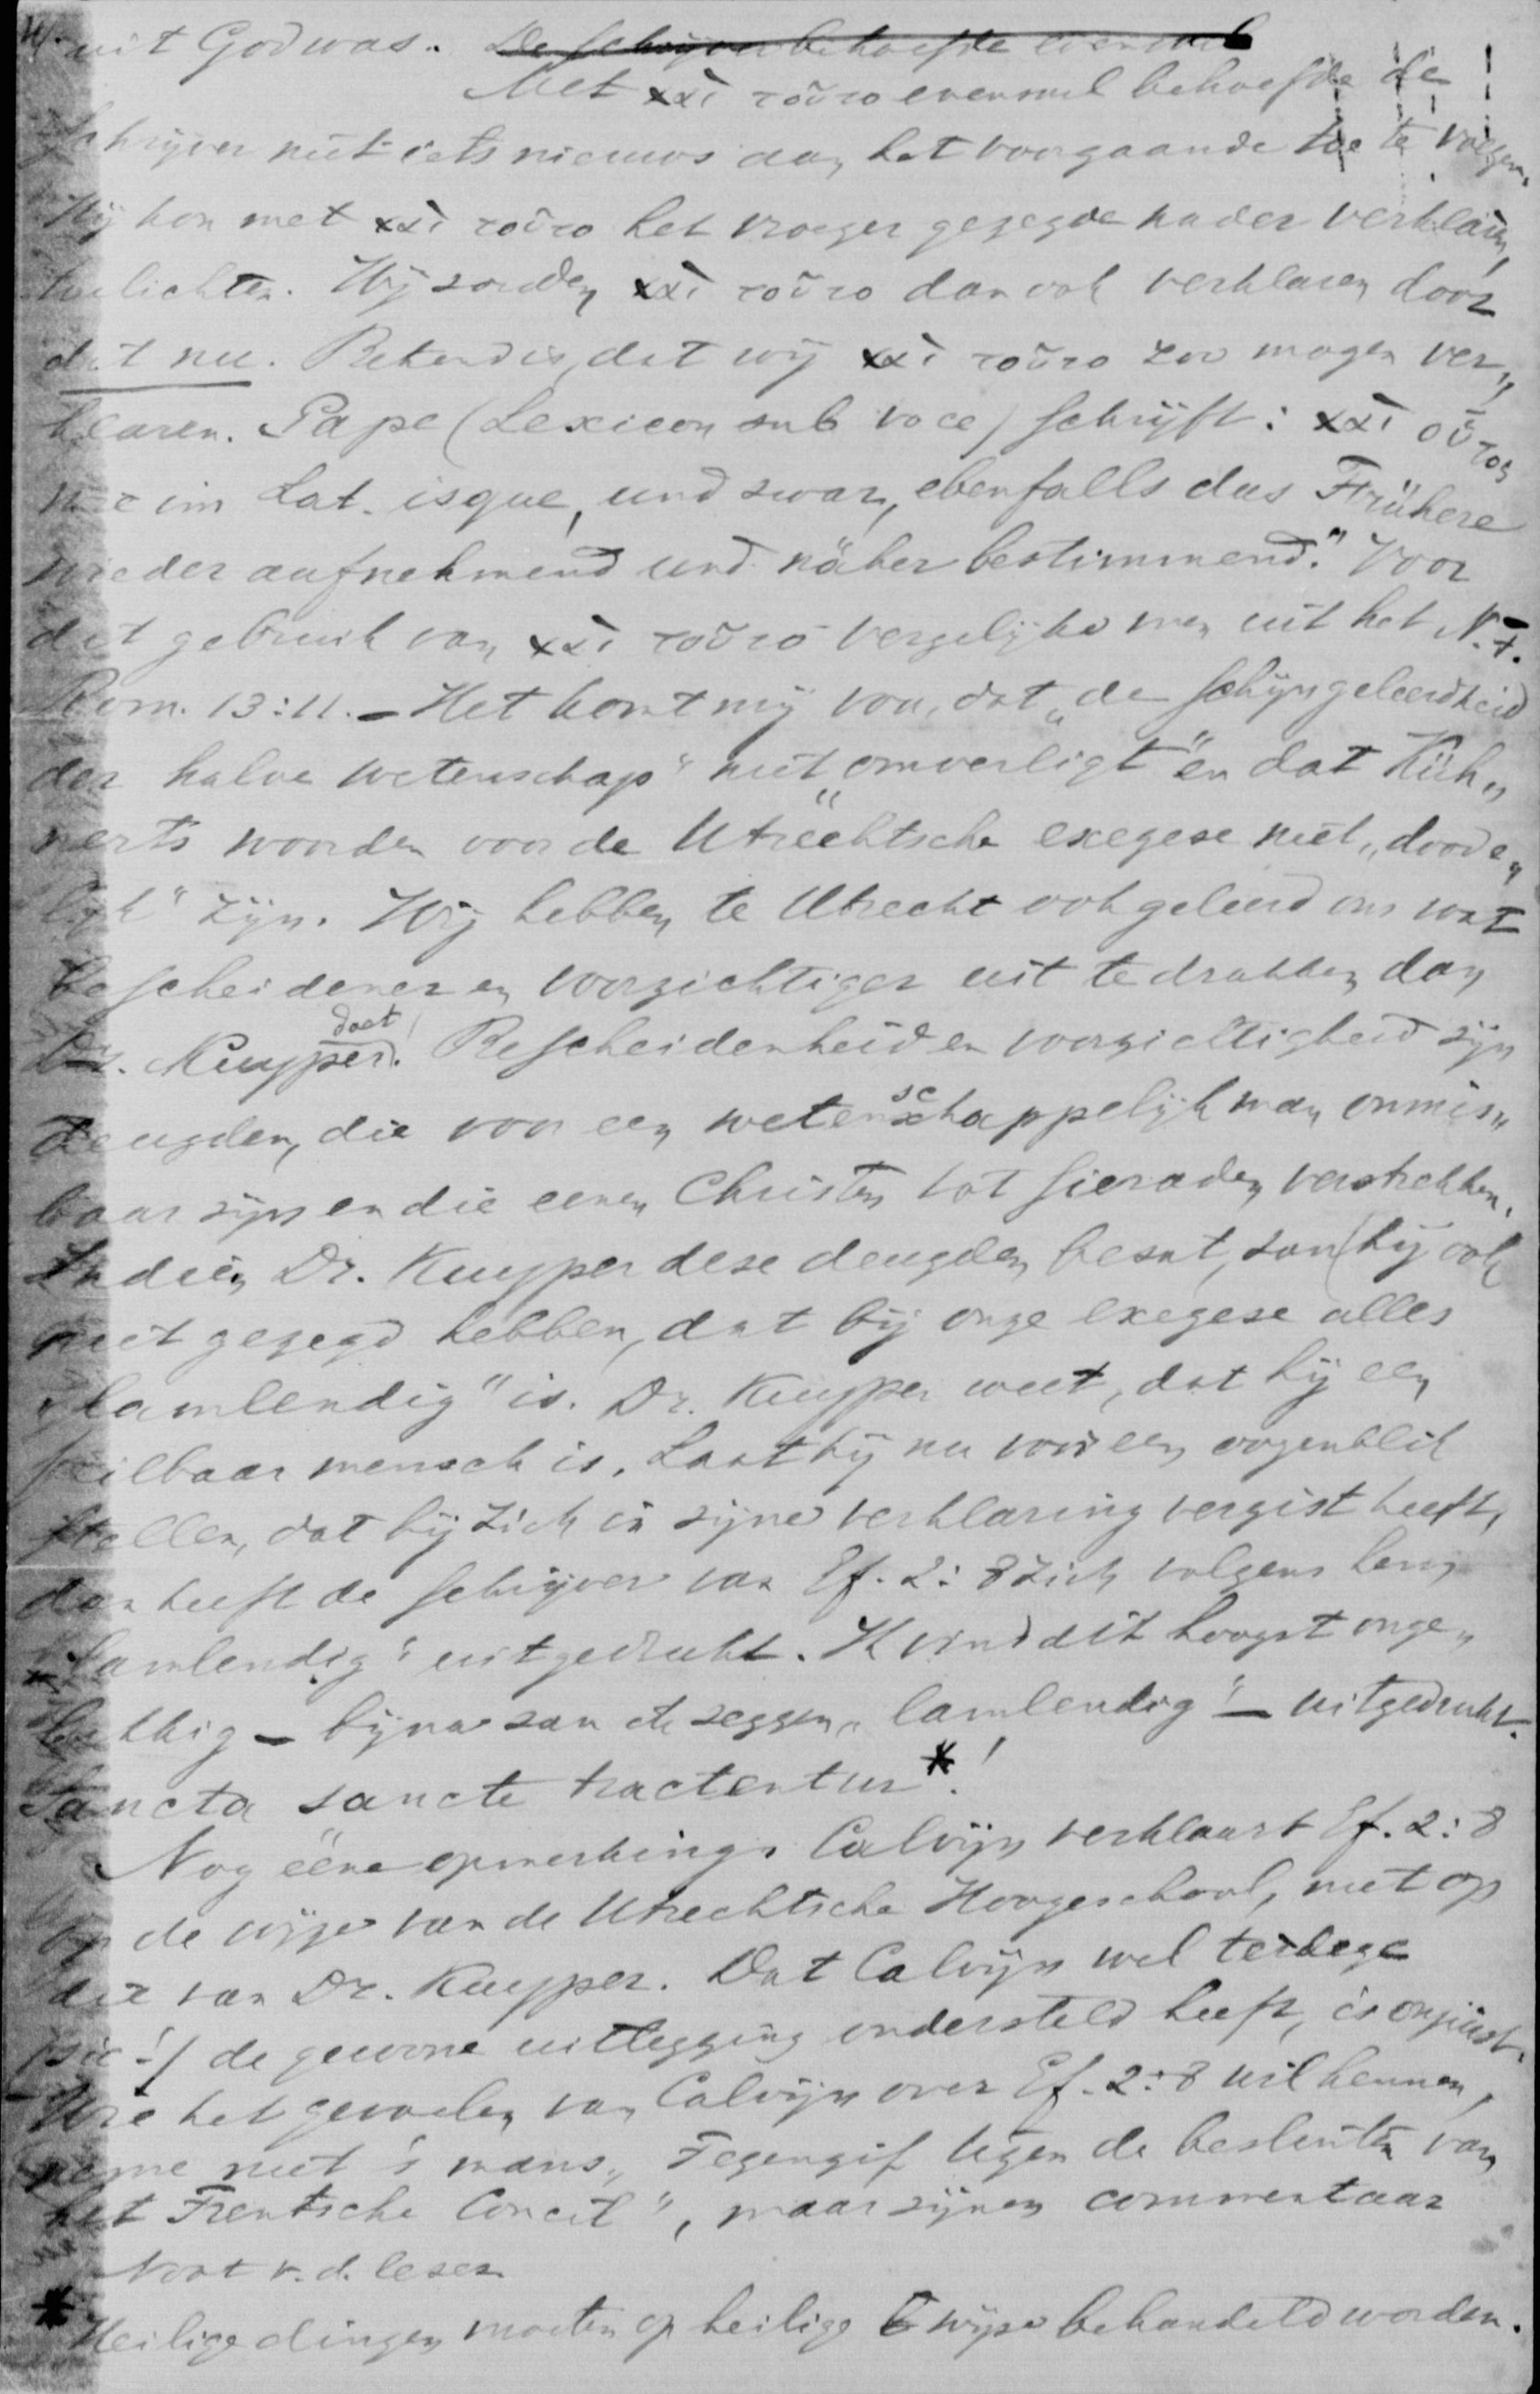 4. uit God was. De schrijver behoefde evenwel
Met καὶ τοῦτο evenwel behoefde de
schrijver niet iets nieuws aan het voorgaande toe te voegen.
Hij kon met καὶ τοῦτο het vroeger gezegde nader verklaren,
toelichten. Wij zouden καὶ τοῦτο dan ook verklaren door
dat nu. Bekend is, dat wij καὶ τοῦτο zoo mogen ver„
klaren. Pape (Lexicon sub voce) schrijft: καὶ οὗτος
wie im Lat. isque, und zwar, ebenfalls das Frühere
wieder aufnehmend und näher bestimmend." Voor
dit gebruik van καὶ τοῦτο vergelijke men uit het N.T.
Rom. 13:11. – Het komt mij voor, dat „de schijngeleerdheid
der halve wetenschap" niet „omverligt" en dat Küh„
nerts woorden voor de Utrechtsche exegese niet „doode„
lijk" zijn. Wij hebben te Utrecht ook geleerd ons wat
bescheidener en voorzichtiger uit te drukken dan
Dr. Kuyper doet! Bescheidenheid en voorzichtigheid zijn
deugden, die voor een wetenschappelijk man onmis„
baar zijn en die eenen Christen tot sieraden verstrekken.
Indien Dr. Kuyper deze deugden bezat, zou hij ook
niet gezegd hebben, dat bij onze exegese alles
„lamlendig" is. Dr. Kuyper weet, dat hij een
feilbaar mensch is. Laat hij nu voor een oogenblik
stellen, dat hij zich in zijne verklaring vergist heeft,
dan heeft de schrijver van Ef. 2:8 zich volgens hem
„lamlendig" uitgedrukt. Ik vind dit hoogst onge„
lukkig – bijna zou ik zeggen „lamlendig" – uitgedrukt.
Sancta sancte tractentur*!
Nog ééne opmerking. Calvijn verklaart Ef. 2:8
op de wijze van de Utrechtsche Hoogeschool, niet op
die van Dr. Kuyper. Dat Calvijn wel terdege
(sic!) de gewone uitlegging ondersteld heeft, is onjuist.
Wie het gevoelen van Calvijn over Ef. 2:8 wil kennen,
neme niet 's mans „Tegengif tegen de besluiten van
het Trentsche Concil", maar zijnen commentaar
Noot v. d. lezer
* Heilige dingen moeten op heilige wijze behandeld worden.